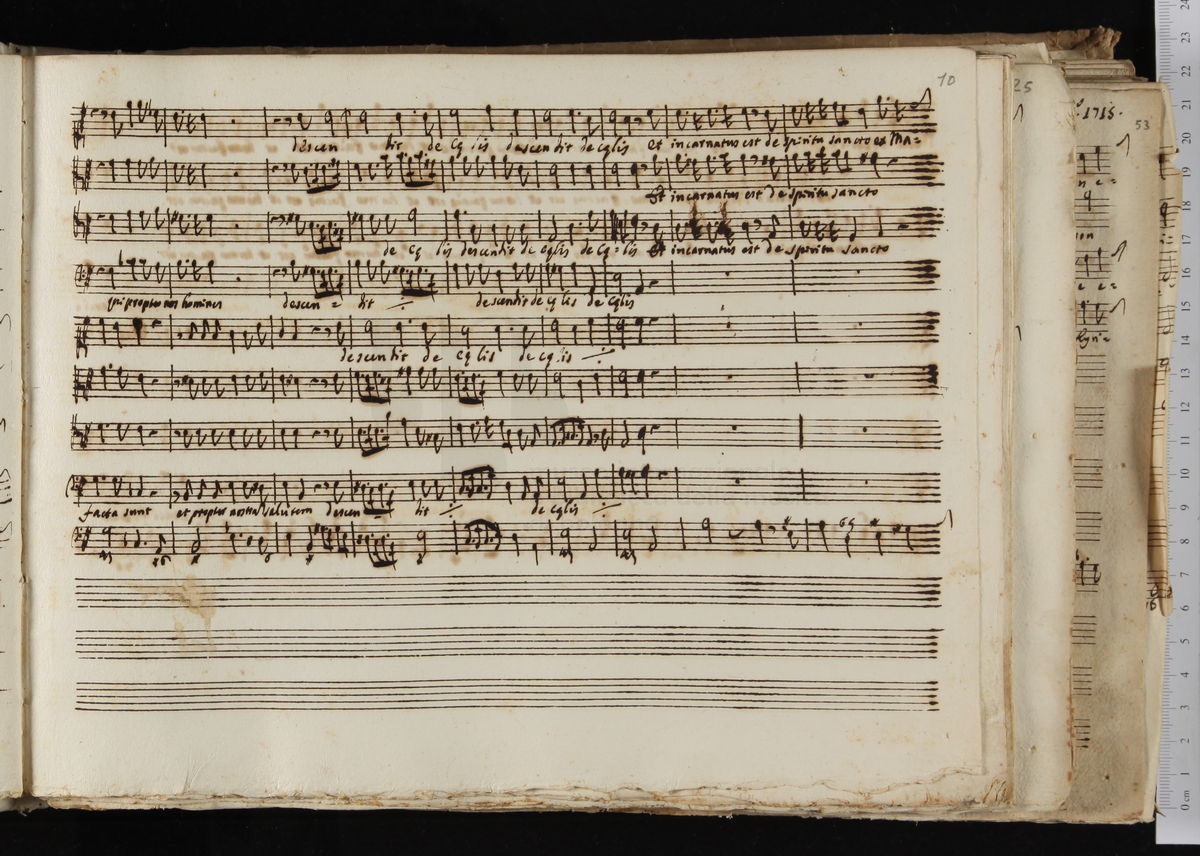 10
descen dit de Cę lis descendit de cęlis et incarnatus est de spiritu sancto ex Ma=
Et incarnatus est de spiritu sancto
de Cę lis descendit de cęlis de Cę=lis Et incarnatus est de spiritu sancto
qui propter nos homines descen = dit descendit de cę lis de Cęlis
descendit de cę lis de cę lis
facta sunt et propter nostra salutem descen dit de cęlis
25
1715.
53